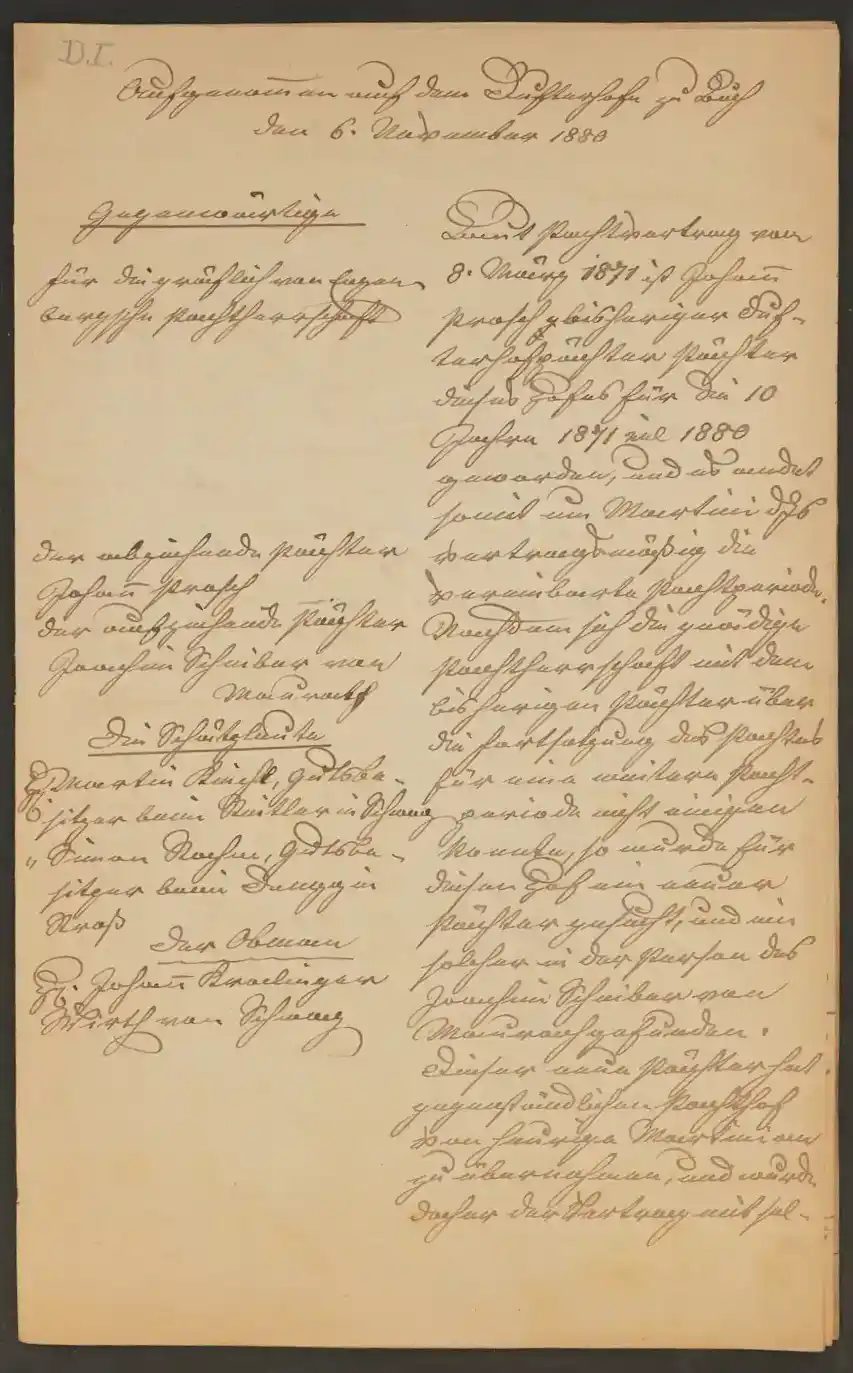 D.I.
Aufgenom̅en auf dem Dufterhofe zu Buch
den 6. November 1880
Gegenwärtige
für die gräflich von Enzen-
bergsche Pachtherrschaft
der abziehende Pächter
Joham̅ Prosch
der aufziehende Pächter
Joachim Schreiber von
Maurach
Die Schätzleute
Martin Kirchl, Gutsbe-
sitzer beim in Schwaz
" Simon Gutsbe-
sitzer beim in
Straß
Der Obman
H. Johan̅ Kradlinger
Wirth von Schwaz
Laut Pachtvertrag vom
8. März 1871 ist Johan̅
Prosch bisheriger Duf-
terhofpächter Pächter
dieses Hofes für die 10
Jahre 1871 incl 1880
geworden, und es endet
somit um Martini dJs
vertragsmäßig die
vereinbarte Pachtperiode.
Nachdem sich die gnädige
Pachtherrschaft mit dem
bisherigen Pächter über
die Fortsetzung des Pachtes
für eine weitere Pacht-
periode nicht einigen
konnte, so wurde für
diesen Hof ein neuer
Pächter gesucht, und ein
solcher in der Person des
Joachim Schreiber von
Maurach gefunden.
Dieser neue Pächter hat
gegenständlichen Pachthof
von heurige Martini an
zu übernehmen, und wurde
daher der Vertrag mit sel-